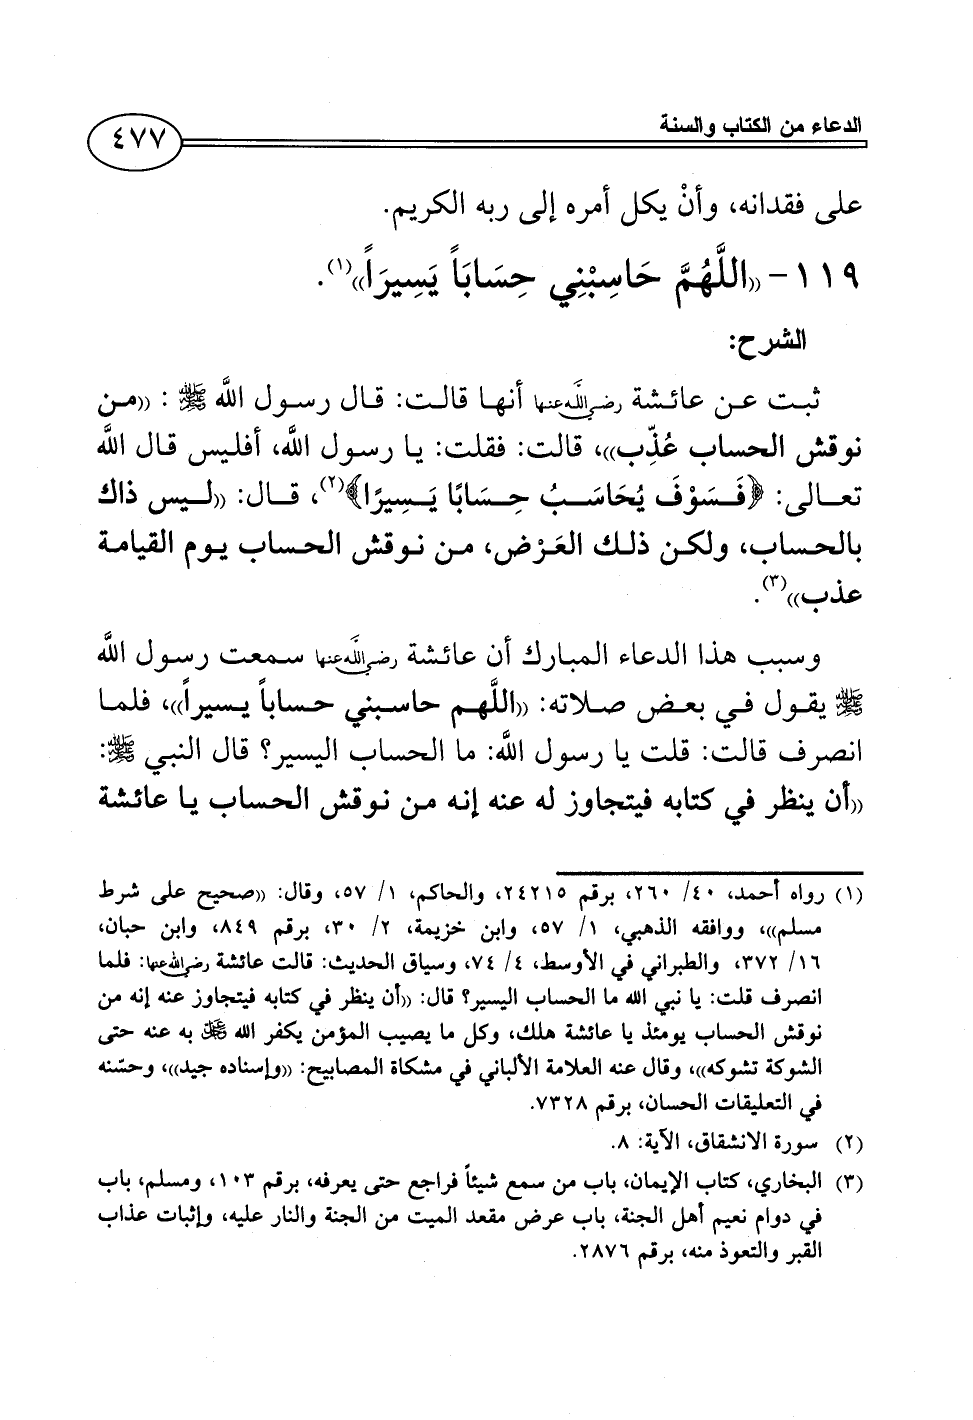 الدعاء من الكتاب والسنة
٤٧٧
على فقدانه، وأنْ يكل أمره إلى ربه الكريم.
١١٩- ((اللَّهُمَّ حَاسِبْنِي حِسَابَاً يَسِيرَاً))(١).
الشرح:
ثبت عن عائشة رضي الله عنها أنها قالت: قال رسول الله ﷺ : ((من
نوقش الحساب عُذِّب))، قالت: فقلت: يا رسول الله، أفليس قال الله
تعالى: ﴿فَسَوْفَ يُحَاسَبُ حِسَابًا يَسِيرًا﴾(٢)، قال: ((ليس ذاك
بالحساب، ولكن ذلك العَرْض، من نوقش الحساب يوم القيامة
عذب))(٣).
وسبب هذا الدعاء المبارك أن عائشة رضي الله عنها سمعت رسول الله
ﷺ يقول في بعض صلاته: ((اللَّهم حاسبني حساباً يسيراً))، فلما
انصرف قالت: قلت يا رسول الله: ما الحساب اليسير؟ قال النبي ﷺ:
((أن ينظر في كتابه فيتجاوز له عنه إنه من نوقش الحساب يا عائشة
(١) رواه أحمد، ٤٠/ ٢٦٠، برقم ٢٤٢١٥، والحاكم، ١/ ٥٧، وقال: ((صحيح على شرط
مسلم))، ووافقه الذهبي، ١/ ٥٧، وابن خزيمة، ٢/ ٣٠، برقم ٨٤٩، وابن حبان،
١٦/ ٣٧٢، والطبراني في الأوسط، ٤/ ٧٤، وسياق الحديث: قالت عائشة رضي الله عنها: فلما
انصرف قلت: يا نبي الله ما الحساب اليسير؟ قال: ((أن ينظر في كتابه فيتجاوز عنه إنه من
نوقش الحساب يومئذ يا عائشة هلك، وكل ما يصيب المؤمن يكفر الله ﷻ به عنه حتى
الشوكة تشوكه))، وقال عنه العلامة الألباني في مشكاة المصابيح: ((وإسناده جيد))، وحسّنه
في التعليقات الحسان، برقم ٧٣٢٨.
(٢) سورة الانشقاق، الآية: ٨.
(٣) البخاري، كتاب الإيمان، باب من سمع شيئاً فراجع حتى يعرفه، برقم ١٠٣، ومسلم، باب
في دوام نعيم أهل الجنة، باب عرض مقعد الميت من الجنة والنار عليه، وإثبات عذاب
القبر والتعوذ منه، برقم ٢٨٧٦.